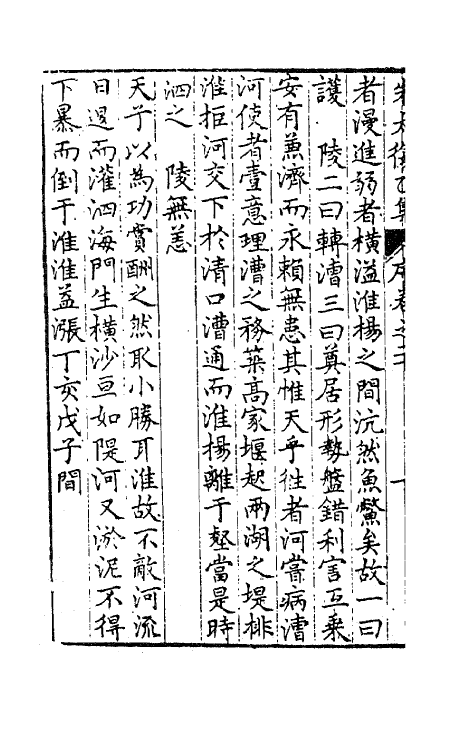 者漫進弱者橫溢淮楊之間沆然魚鱉矣故一曰
護 陵二曰轉漕三曰奠居形勢盤錯利害互乗
安有蒹濟而永賴無患其惟天乎徃者河嘗病漕
河使者壹意理漕之務築高家堰起兩湖之堤排
淮拒河交下於清口漕通而淮揚離于壑當是時
泗之 陵無恙
天子以為功賞酬之然取小勝耳淮故不敵河流
日遏而灌泗海門生橫沙亘如隄河又淤泥不得
下暴而倒于淮淮益漲丁亥戊子間